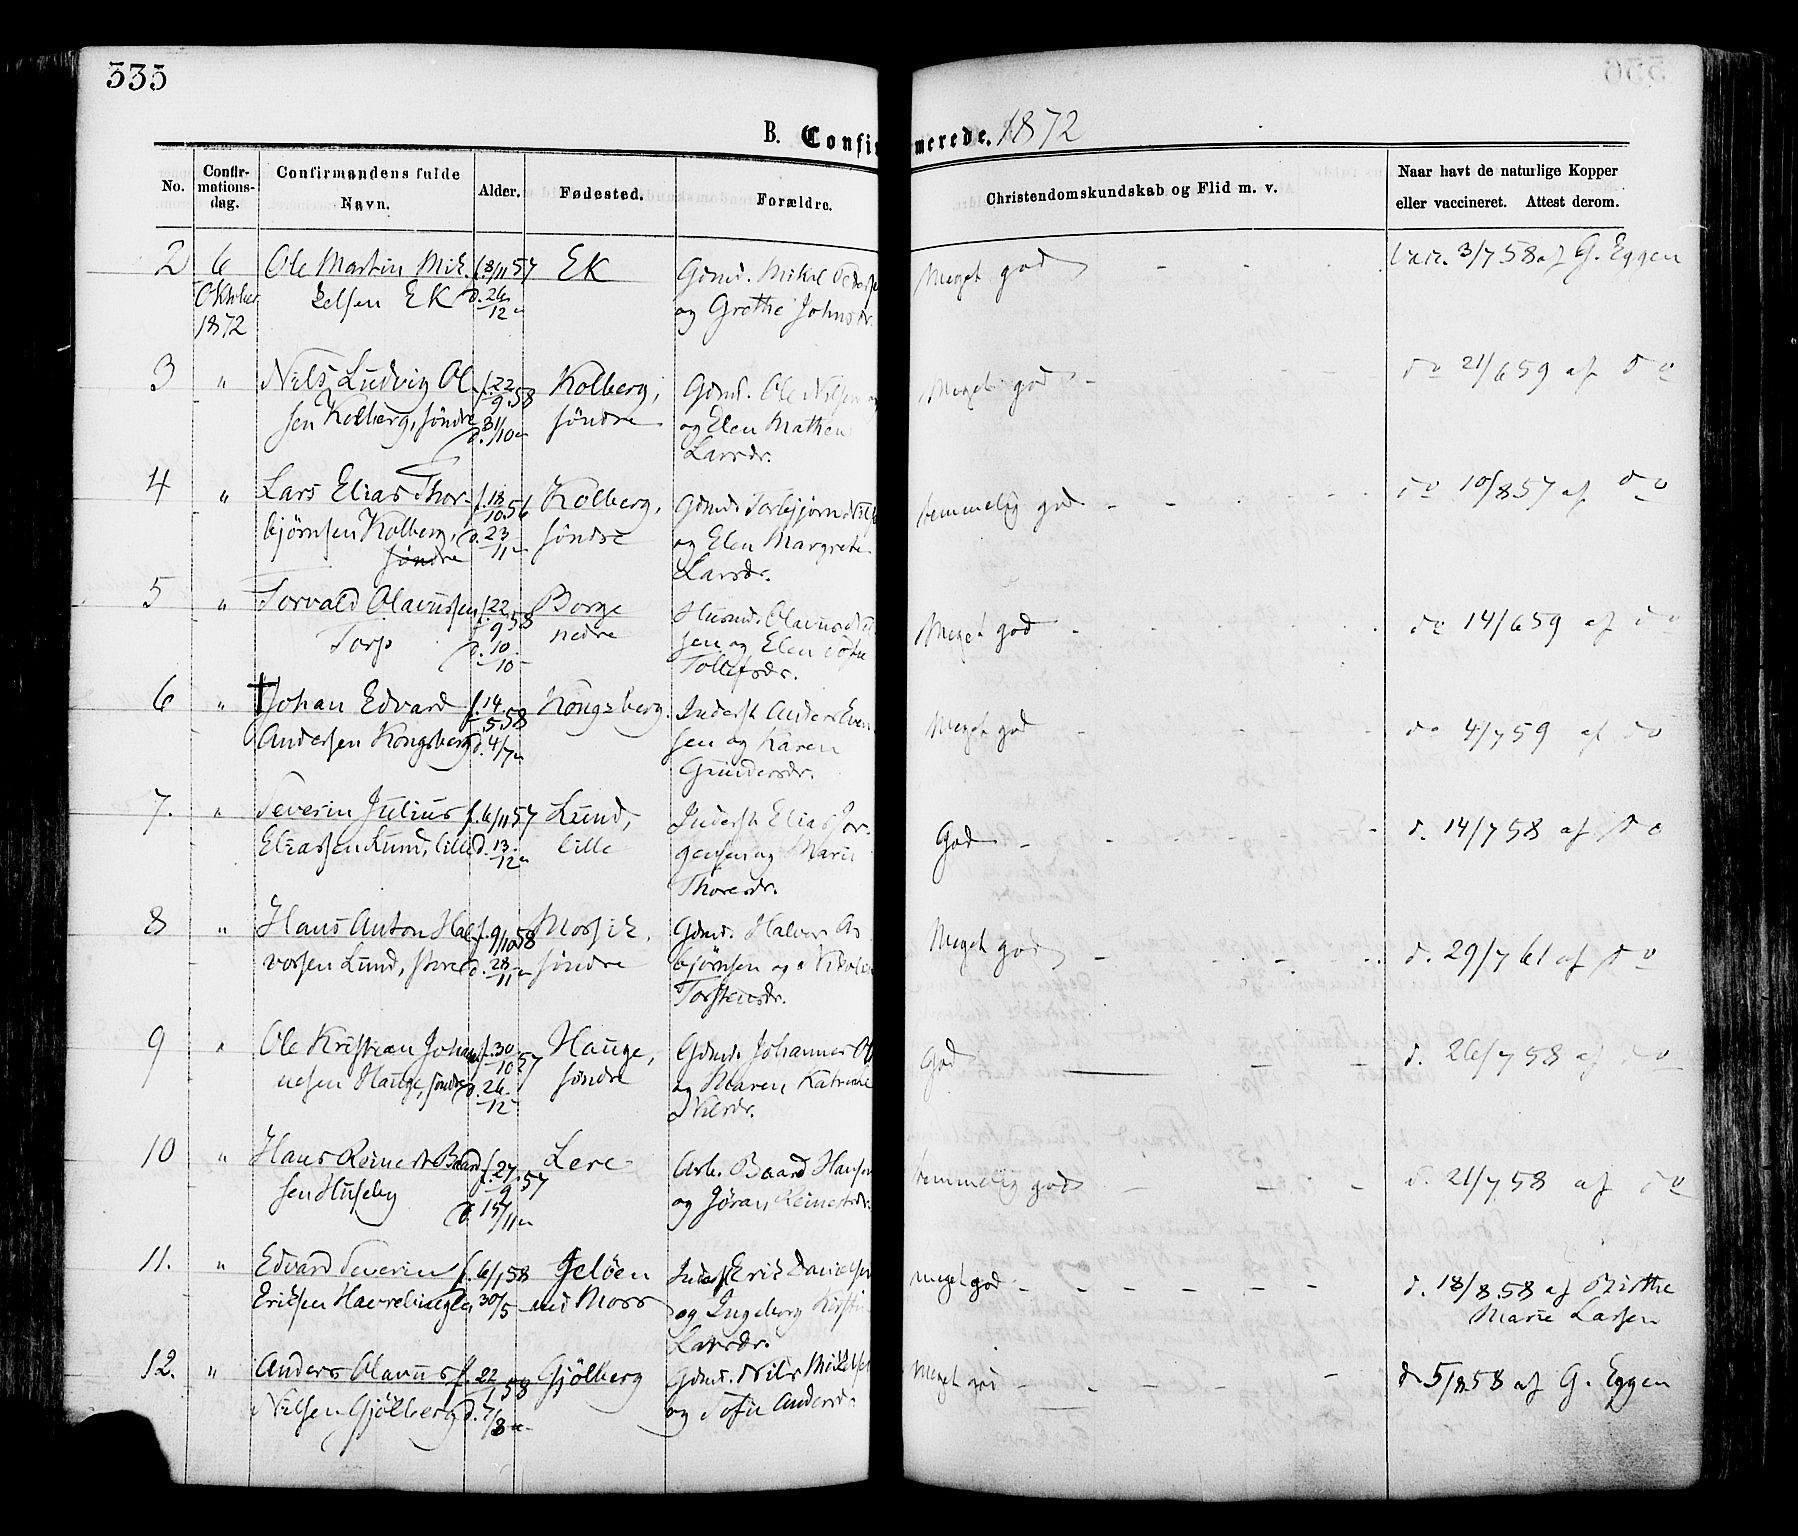 335
B. Confirmerede. 1872
No.
Confir-
mations-
dag.
Confirmandens fulde
Navn.
Alder.
Fødested.
Forældre.
Christendomskundskab og Flid m. v.
Naar havt de naturlige Kopper
eller vaccineret. Attest derom.
2 6 Ole Martin Mik- f. 8/11 57 EK Gdmd. Mikal Peders Meget god Vacc. 3/7 58 af G. Eggen
Oktober kelsen EK d. 26/12 og Grethe Johnsdr.
1872
3 " Nils Ludvig Ol- f. 22/9 58 Kolberg, Gdmd. Ole Nilsen Meget god do 21/6 59 af do
sen Kolberg, søndre d. 31/10 søndre og Elen Mathea
Larsdr.
4 " Lars Elias Thor- f. 18/10 56 Kolberg, Gdmd. Torbjørn Nils temmelig god do 10/8 57 af do
bjørnsen Kolberg, d. 23/11 søndre og Elen Margrete
søndre Larsdr.
5 " Torvald Olavussen f. 22/9 58 Borge Husmd. Olavus Nil Meget god do 14/6 59 af do
Torp d. 10/10 nedre sen og Elen Sofie
Tollefsdr.
6 " † Johan Edvard f. 14/5 58 Kongsberg. Inderst Anders Even Meget god do 4/7 59 af do
Andersen Kongsberg d. 4/7 sen og Karen
Gundersdr.
7. " Severin Julius f. 6/11 57 Lund, Inderst Elias Jør- God d. 14/7 58 af do
Eliassen Lund, lille d. 13/12 lille gensen og Marie
Thoresdr.
8 " Hans Anton Hal- f. 9/10 58 Mossik, Gdmd. Halvor As Meget god d. 29/7 61 af do
vorsen Lund, store d. 28/11 søndre bjørnsen og Nikoline
Torstensdr.
9 " Ole Kristian Johan f. 30/10 57 Hauge, Gdmd. Johannes Ol God d. 26/7 58 af do
nesen Hauge, søndre d. 26/12 søndre og Maren Katrine
Nilsdr.
10 " Hans Reinert Baard f. 27/9 57 Lere Arb. Baard Hansen temmelig god d. 21/7 58 af do
sen Huseby d. 15/11 og Jøran Reinertsdr.
11. " Edvard Severin f. 6/1 58 Jeløen Inderst Erik Danielsen meget god d. 18/8 58 af Birthe
Eriksen 30/5 ved Moss og Ingeborg Kirstine Marie Larsen
Larsdr.
12. " Anders Olavus f. 22/1 58 Gjølberg Gdmd. Nils Mikkelsen Meget god d 5/8 58 af G. Eggen
Nilsen Gjølberg d. 7/3 og Sofie Andersd.